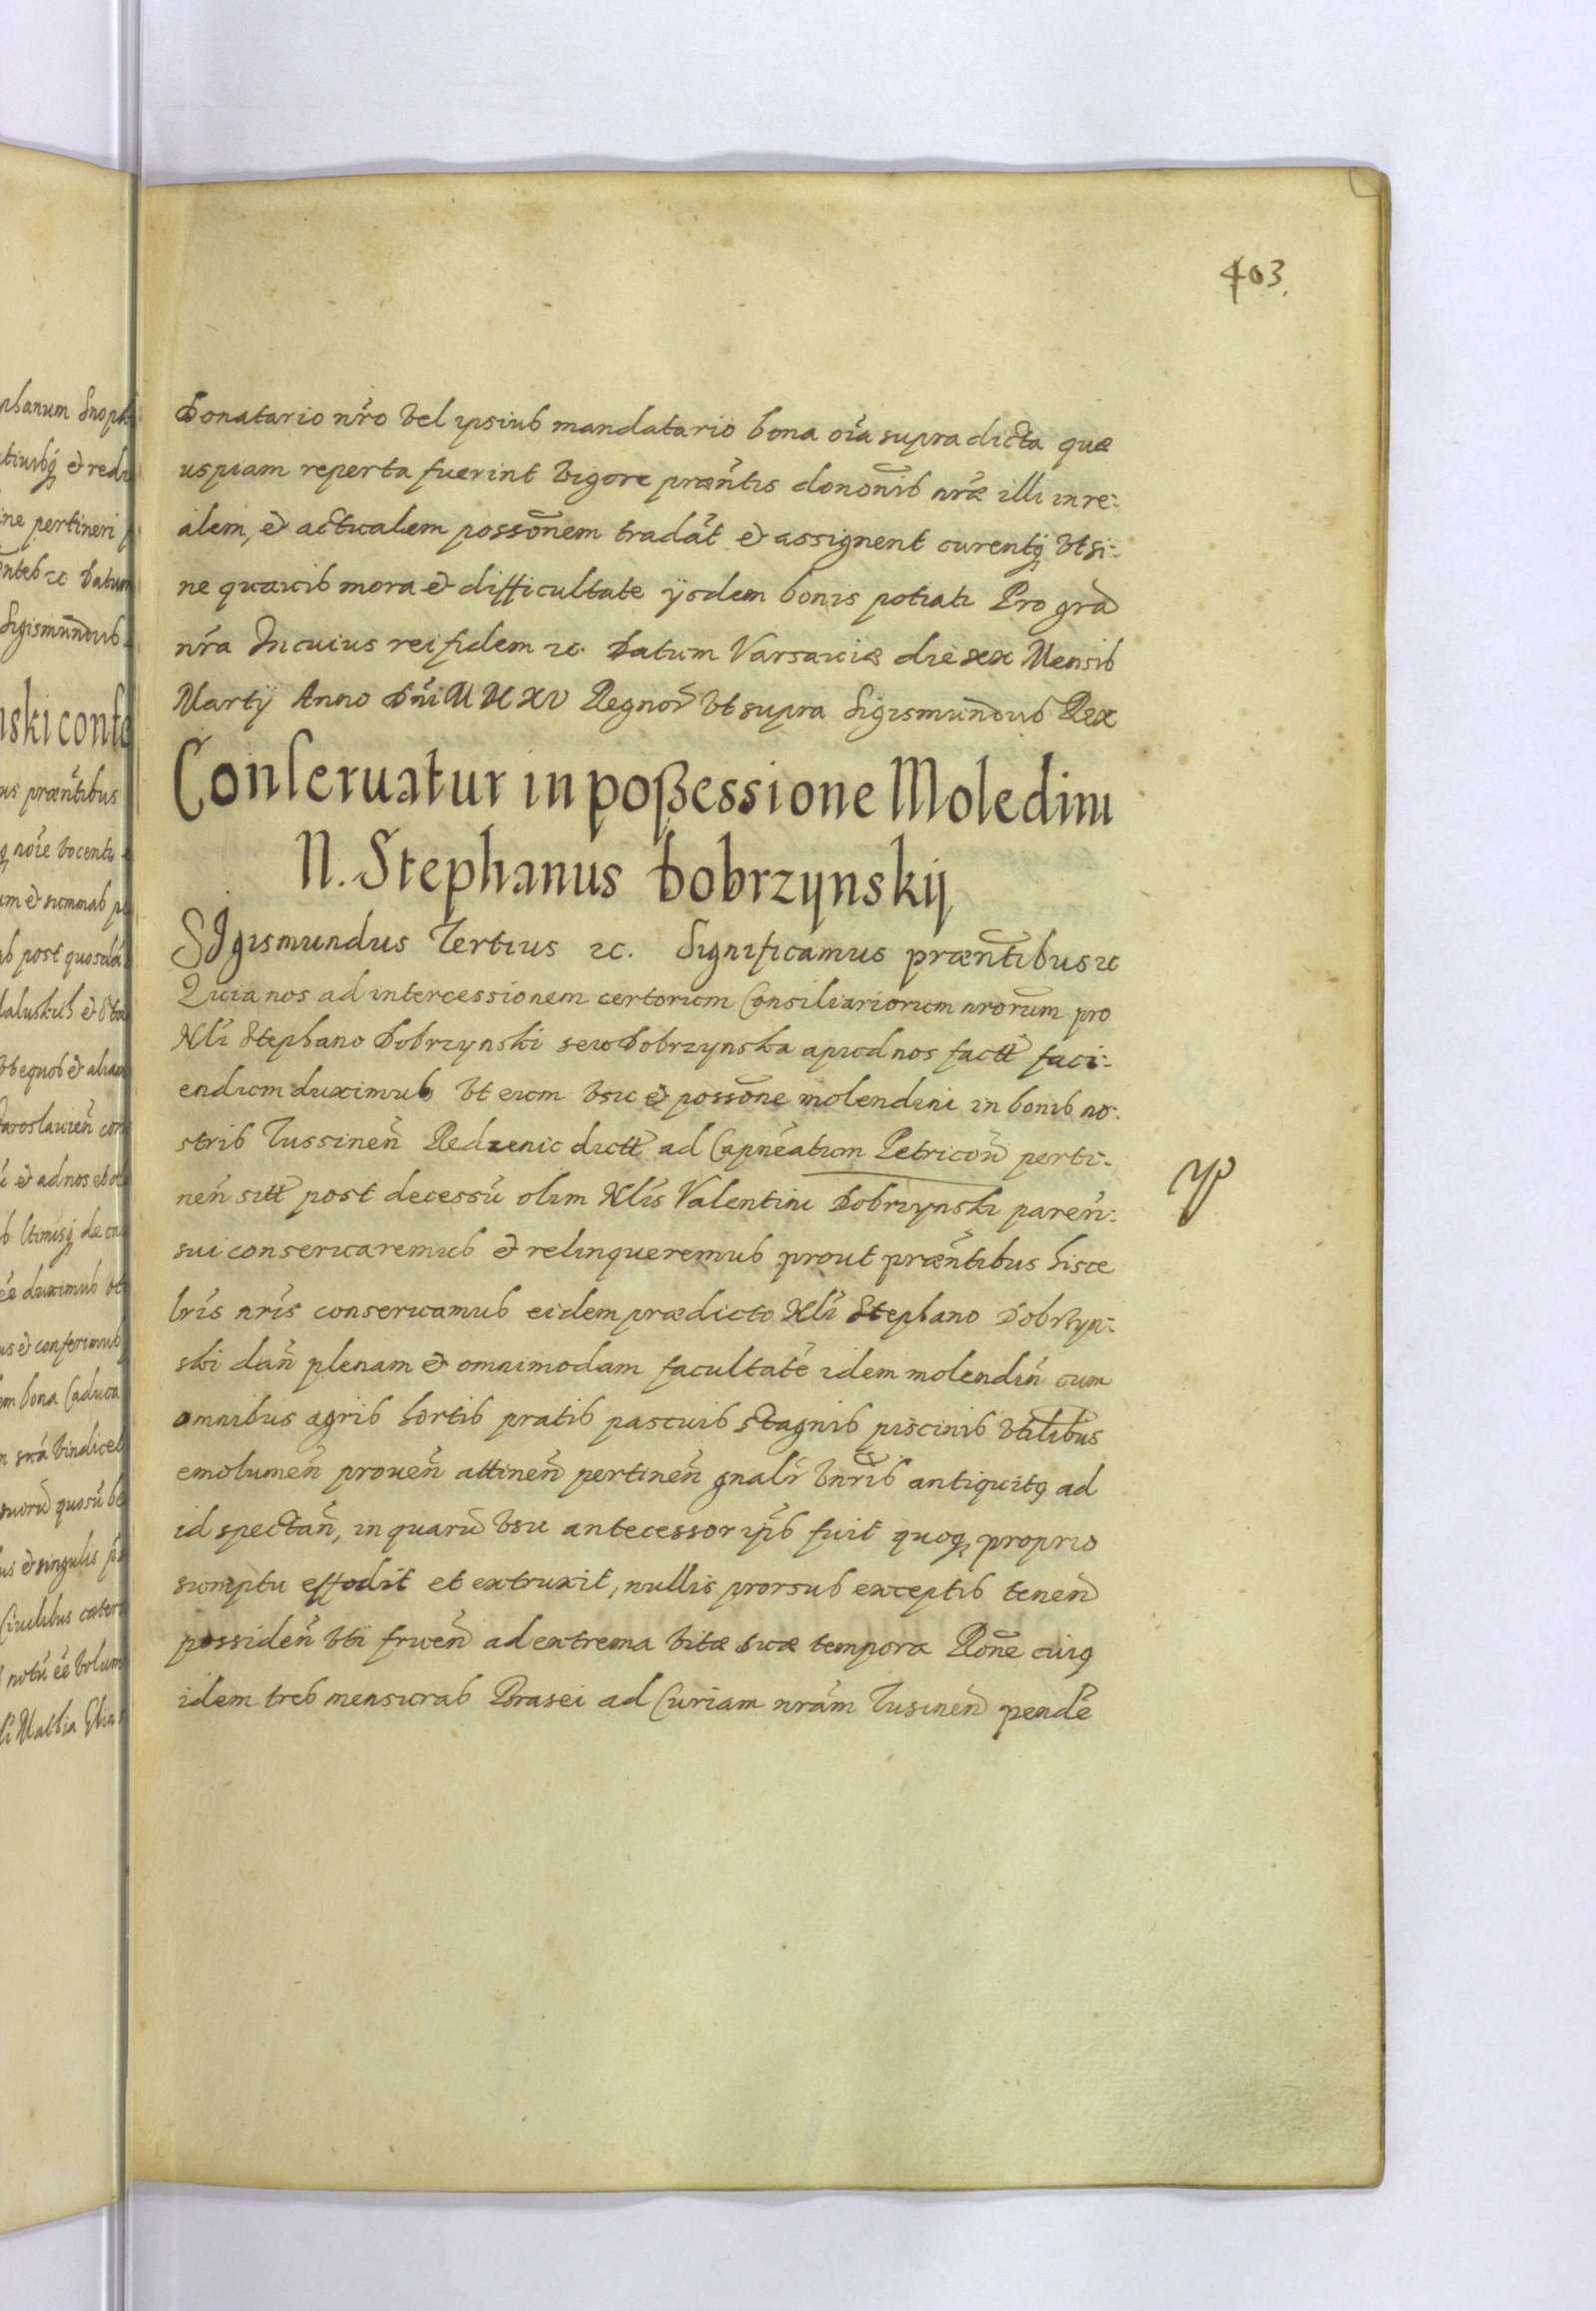 403.
Donatario nr̃o vel ipsius mandatario bona oĩa supra dicta quæ
uspiam reperta fuerint vigore præñtis donoñis nr̃æ illi in re-
alem, et actualem possõnem tradãt et assignent curentq; vt si-
ne quavis mora et difficultate ijsdem bonis potiatr Pro grã
nr̃a In cuius rei fidem etc. Datum Varsaviæ die xx Mensis
Martij Anno Dñi M DC XV Regnor̃ vt supra Sigismundus Rex
Conseruatur in poßessione Moledini
N. Stephanus Dobrzynskij
SIgismundus Tertius etc. Significamus præñtibus etc
Quia nos ad intercessionem certorum Consiliariorum nrorum pro
Nli Stephano Dobrzynski seu Dobrzynska apud nos factã faci-
endum duximus vt eum vsu et possõne molendini in bonis no-
stris Tussineñ Redzenie dictã ad Capñeatum Petricoñ perti-
neñ sitã post decessũ olim Nlis Valentini Dobrzynski pareñ-
sui conservaremus et relinqueremus prout præñtibus hisce
lrĩs nrĩs conservamus eidem prædicto Nli Stephano Dobrzyn-
ski dañ plenam et omnimodam facultatẽ idem molendiñ cum
omnibus agris hortis pratis pascuis stagnis piscinis vtilibus
emolumeñ proueñ attineñ pertineñ gnalr vnr̃is antiquitq ad
id spectañ, in quarũ vsu antecessor ip̃s fuit quoq; proprio
sumptu effodit et extruxit, nullis prorsus exceptis teneñ
possideñ vti frueñ ad extrema vitæ suæ tempora Rõne cuiq
idem tres mensuras Brasei ad Curiam nrãm Tusineñ pendẽ